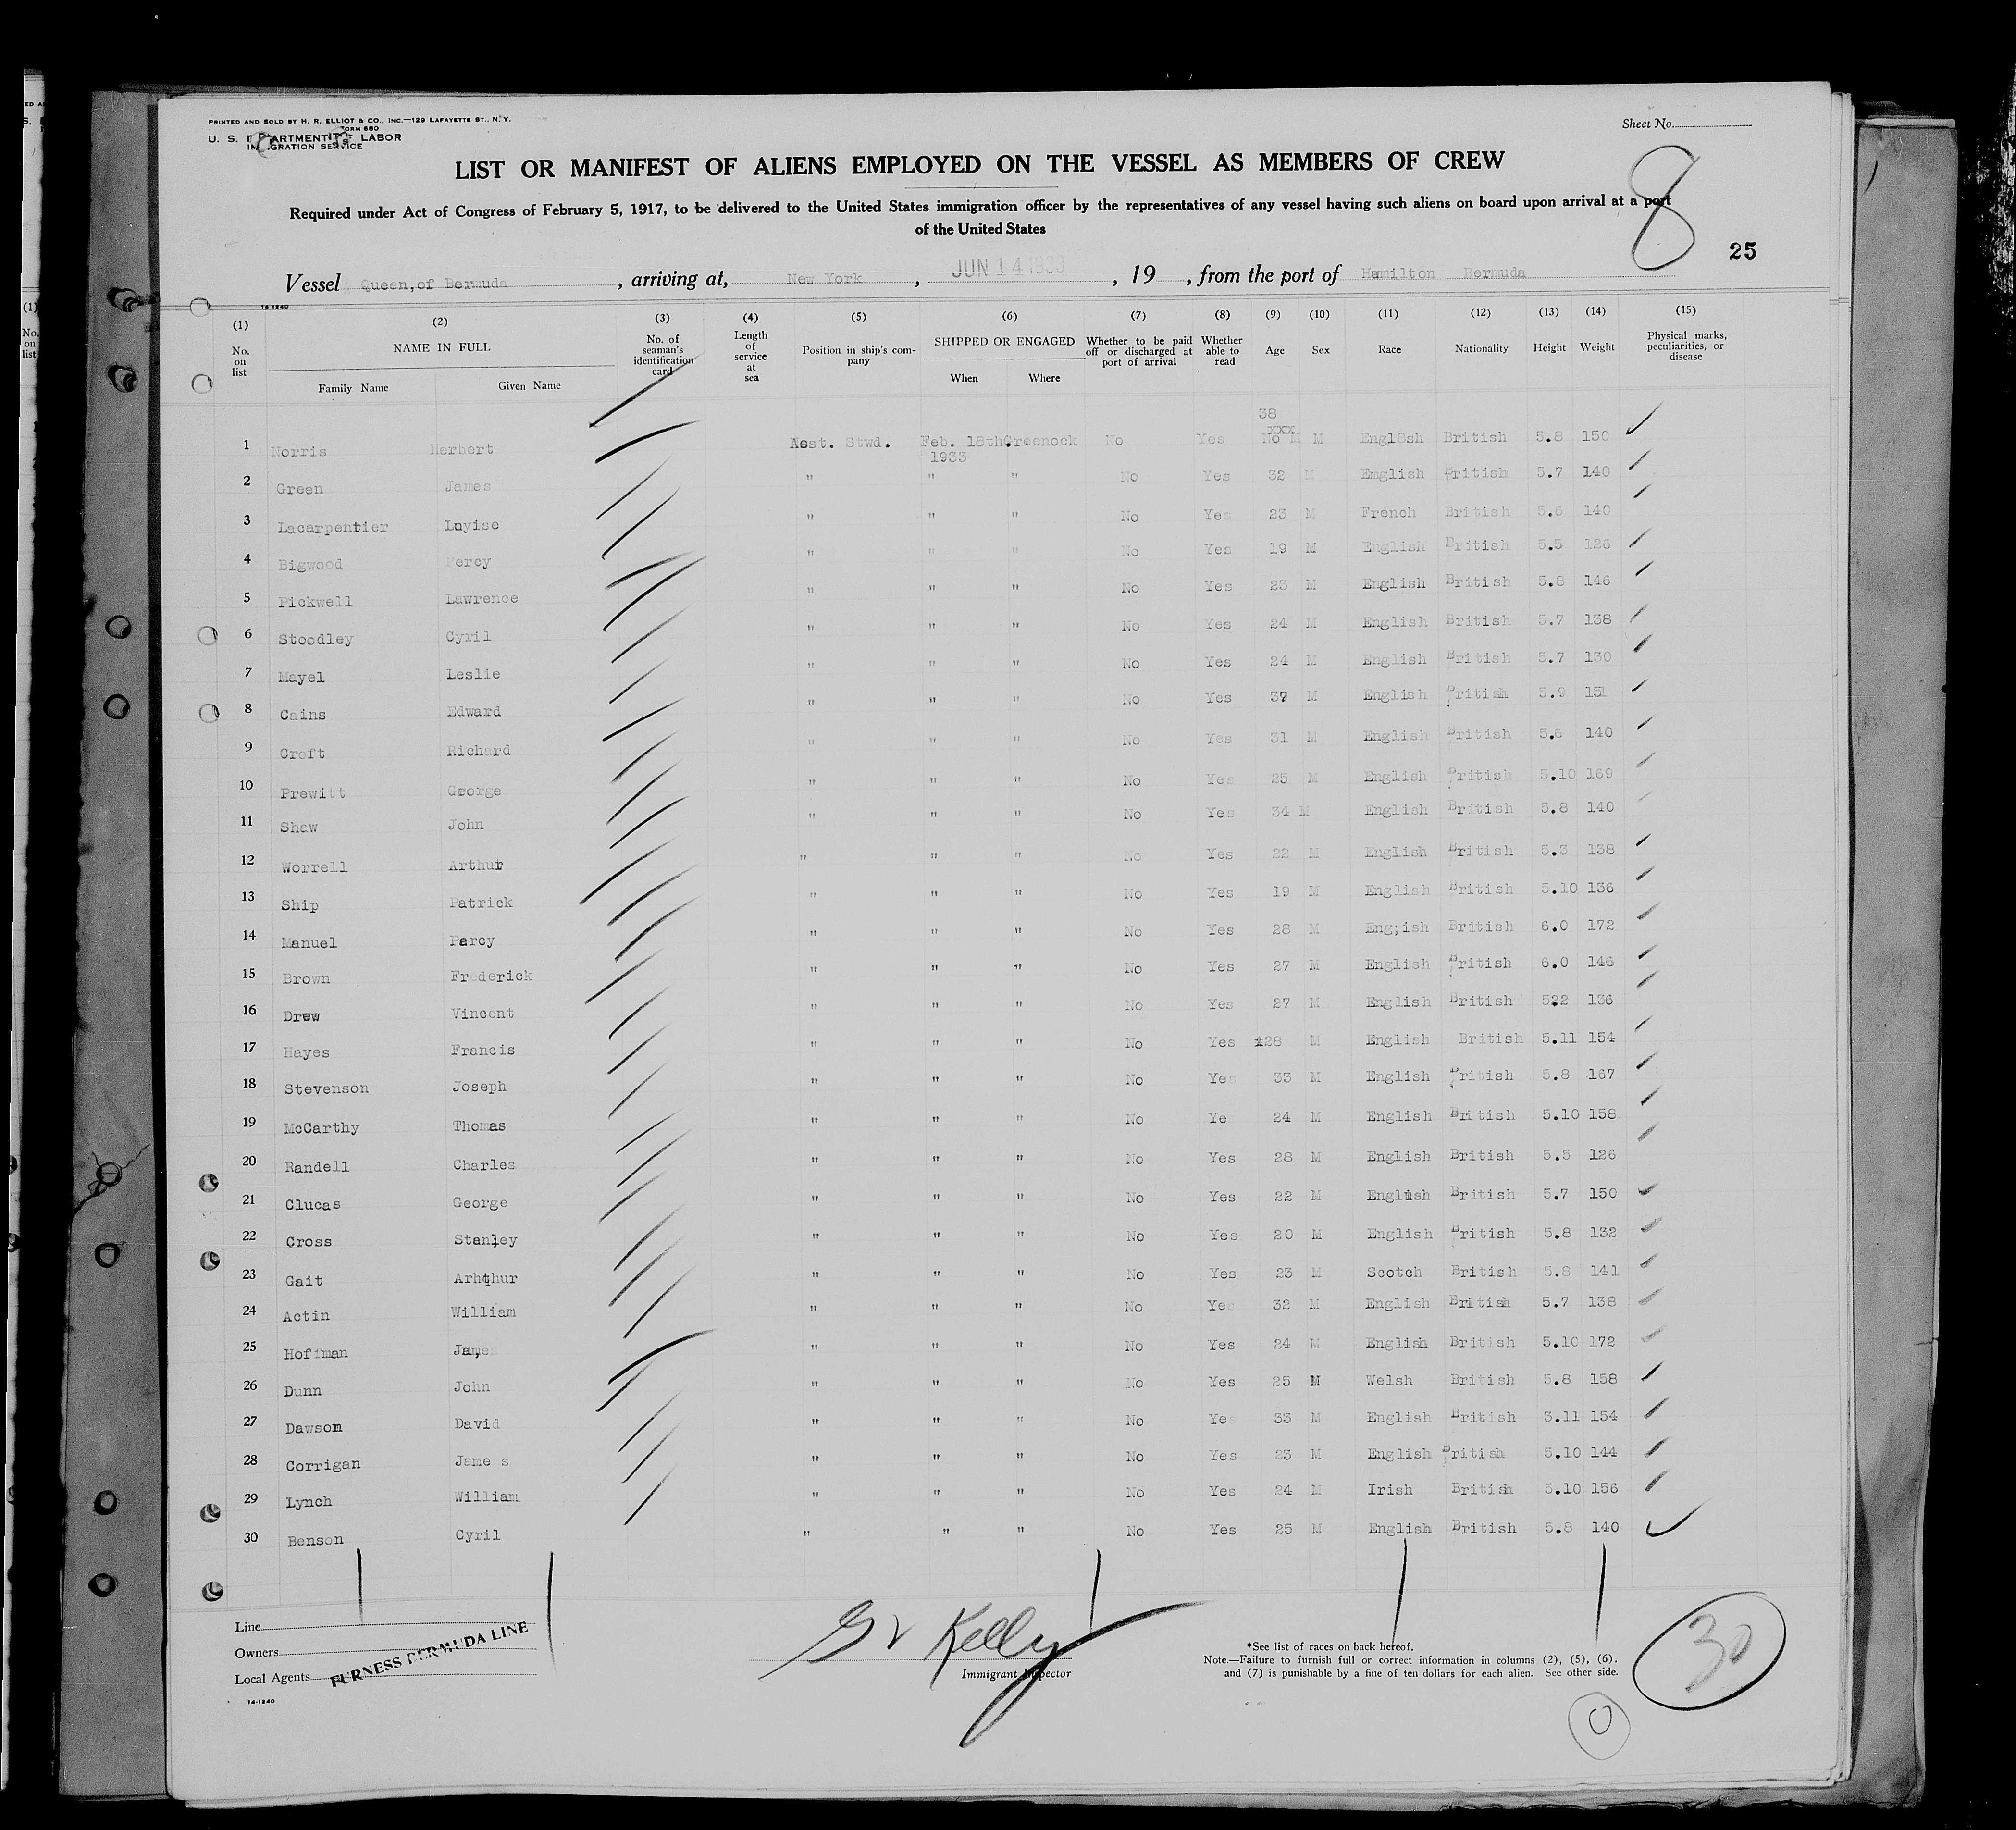 PRINTED AND SOLD BY H. R. ELLIOT & CO., INC.—129 LAFAYETTE ST., N. Y.
FORM 680
U. S. DEPARTMENT OF LABOR
IMMIGRATION SERVICE
Sheet No.
8
LIST OR MANIFEST OF ALIENS EMPLOYED ON THE VESSEL AS MEMBERS OF CREW
Required under Act of Congress of February 5, 1917, to be delivered to the United States immigration officer by the representatives of any vessel having such aliens on board upon arrival at a port
of the United States
25
Vessel Queen,of Bermuda , arriving at, New York , JUN 14 1933 , 19 , from the port of Hamilton Bermuda
14-1240
(1) No. on list (2) NAME IN FULL Family Name Given Name (3) No. of seaman's identification card (4) Length of service at sea (5) Position in ship's company (6) SHIPPED OR ENGAGED When Where (7) Whether to be paid off or discharged at port of arrival (8) Whether able to read (9) Age (10) Sex (11) Race (12) Nationality (13) Height (14) Weight (15) Physical marks, peculiarities, or disease
38
1 Norris Herbert Asst. Stwd. Feb. 18th Greenock No Yes No M M Engl8sh British 5.8 150
1933
2 Green James " " " No Yes 32 M Emglish British 5.7 140
3 Lacarpentier Luyise " " " No Yes 23 M French British 5.6 140
4 Bigwood Percy " " " No Yes 19 M English British 5.5 126
5 Pickwell Lawrence " " " No Yes 23 M English British 5.8 146
6 Stoodley Cyril " " " No Yes 24 M English British 5.7 138
7 Mayel Leslie " " " No Yes 24 M English British 5.7 130
8 Cains Edward " " " No Yes 37 M English British 5.9 151
9 Croft Richard " " " No Yes 31 M English British 5.6 140
10 Prewitt George " " " No Yes 25 M English British 5.10 169
11 Shaw John " " " No Yes 34 M English British 5.8 140
12 Worrell Arthur " " " No Yes 22 M English British 5.3 138
13 Ship Patrick " " " No Yes 19 M English British 5.10 136
14 Manuel Percy " " " No Yes 28 M Eng;ish British 6.0 172
15 Brown Frederick " " " No Yes 27 M English British 6.0 146
16 Drew Vincent " " " No Yes 27 M English British 5.2 136
17 Hayes Francis " " " No Yes 28 M English British 5.11 154
18 Stevenson Joseph " " " No Ye 33 M English British 5.8 167
19 McCarthy Thomas " " " No Ye 24 M English British 5.10 158
20 Randell Charles " " " No Yes 28 M English British 5.5 126
21 Clucas George " " " No Yes 22 M English British 5.7 150
22 Cross Stanley " " " No Yes 20 M English British 5.8 132
23 Gait Arhthur " " " No Yes 23 M Scotch British 5.8 141
24 Actin William " " " No Yes 32 M English British 5.7 138
25 Hoffman James " " " No Yes 24 M English British 5.10 172
26 Dunn John " " " No Yes 25 M Welsh British 5.8 158
27 Dawson David " " " No Ye 33 M English British 3.11 154
28 Corrigan Jame s " " " No Yes 23 M English British 5.10 144
29 Lynch William " " " No Yes 24 M Irish British 5.10 156
30 Benson Cyril " " " No Yes 25 M English British 5.8 140
Line
Owners
Local Agents FURNESS BERMUDA LINE
14-1240
Kelly
Immigrant Inspector
*See list of races on back hereof.
Note.—Failure to furnish full or correct information in columns (2), (5), (6),
and (7) is punishable by a fine of ten dollars for each alien. See other side.
30
0